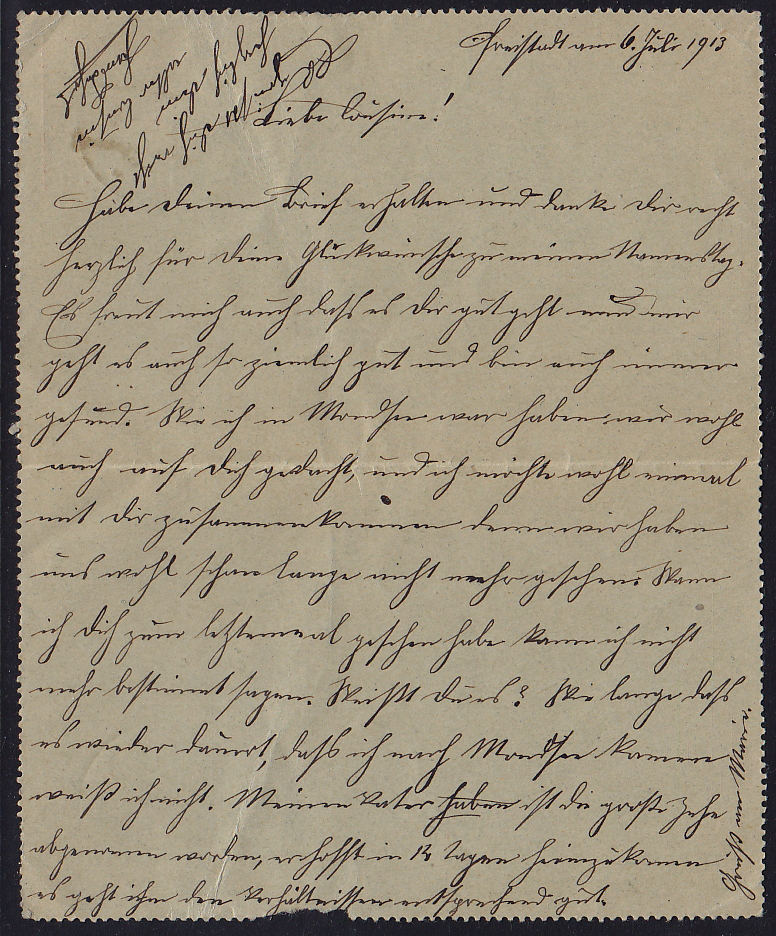 Freistadt am 6. Juli 1913
Liebe Cousine!
Habe deinen Brief erhalten und danke dir recht
herzlich für deine Glückwünsche zu meinen Namenstag.
Es freut mich auch dass es dir gut geht und mir
geht es auch so ziemlich gut und bin auch immer
gesund. Wie ich in Mondsee war haben wir wohl
auch auf dich gedacht, und ich möchte wohl einmal
mit dir zusammenkommen denn wir haben
uns wohl schon lange nicht mehr gesehen. Wann
ich dich zum letztenmal gesehen habe kann ich nicht
mehr bestimmt sagen. Weißt du es? Wie lange dass
es wieder dauert, dass ich nach Mondsee komme
weiß ich nicht. Meinen Vater haben ist die große Zehe
abgenommen worden, er hofft in 12 Tagen heimzukommen
es geht ihm den Verhältnissen entsprechend gut.